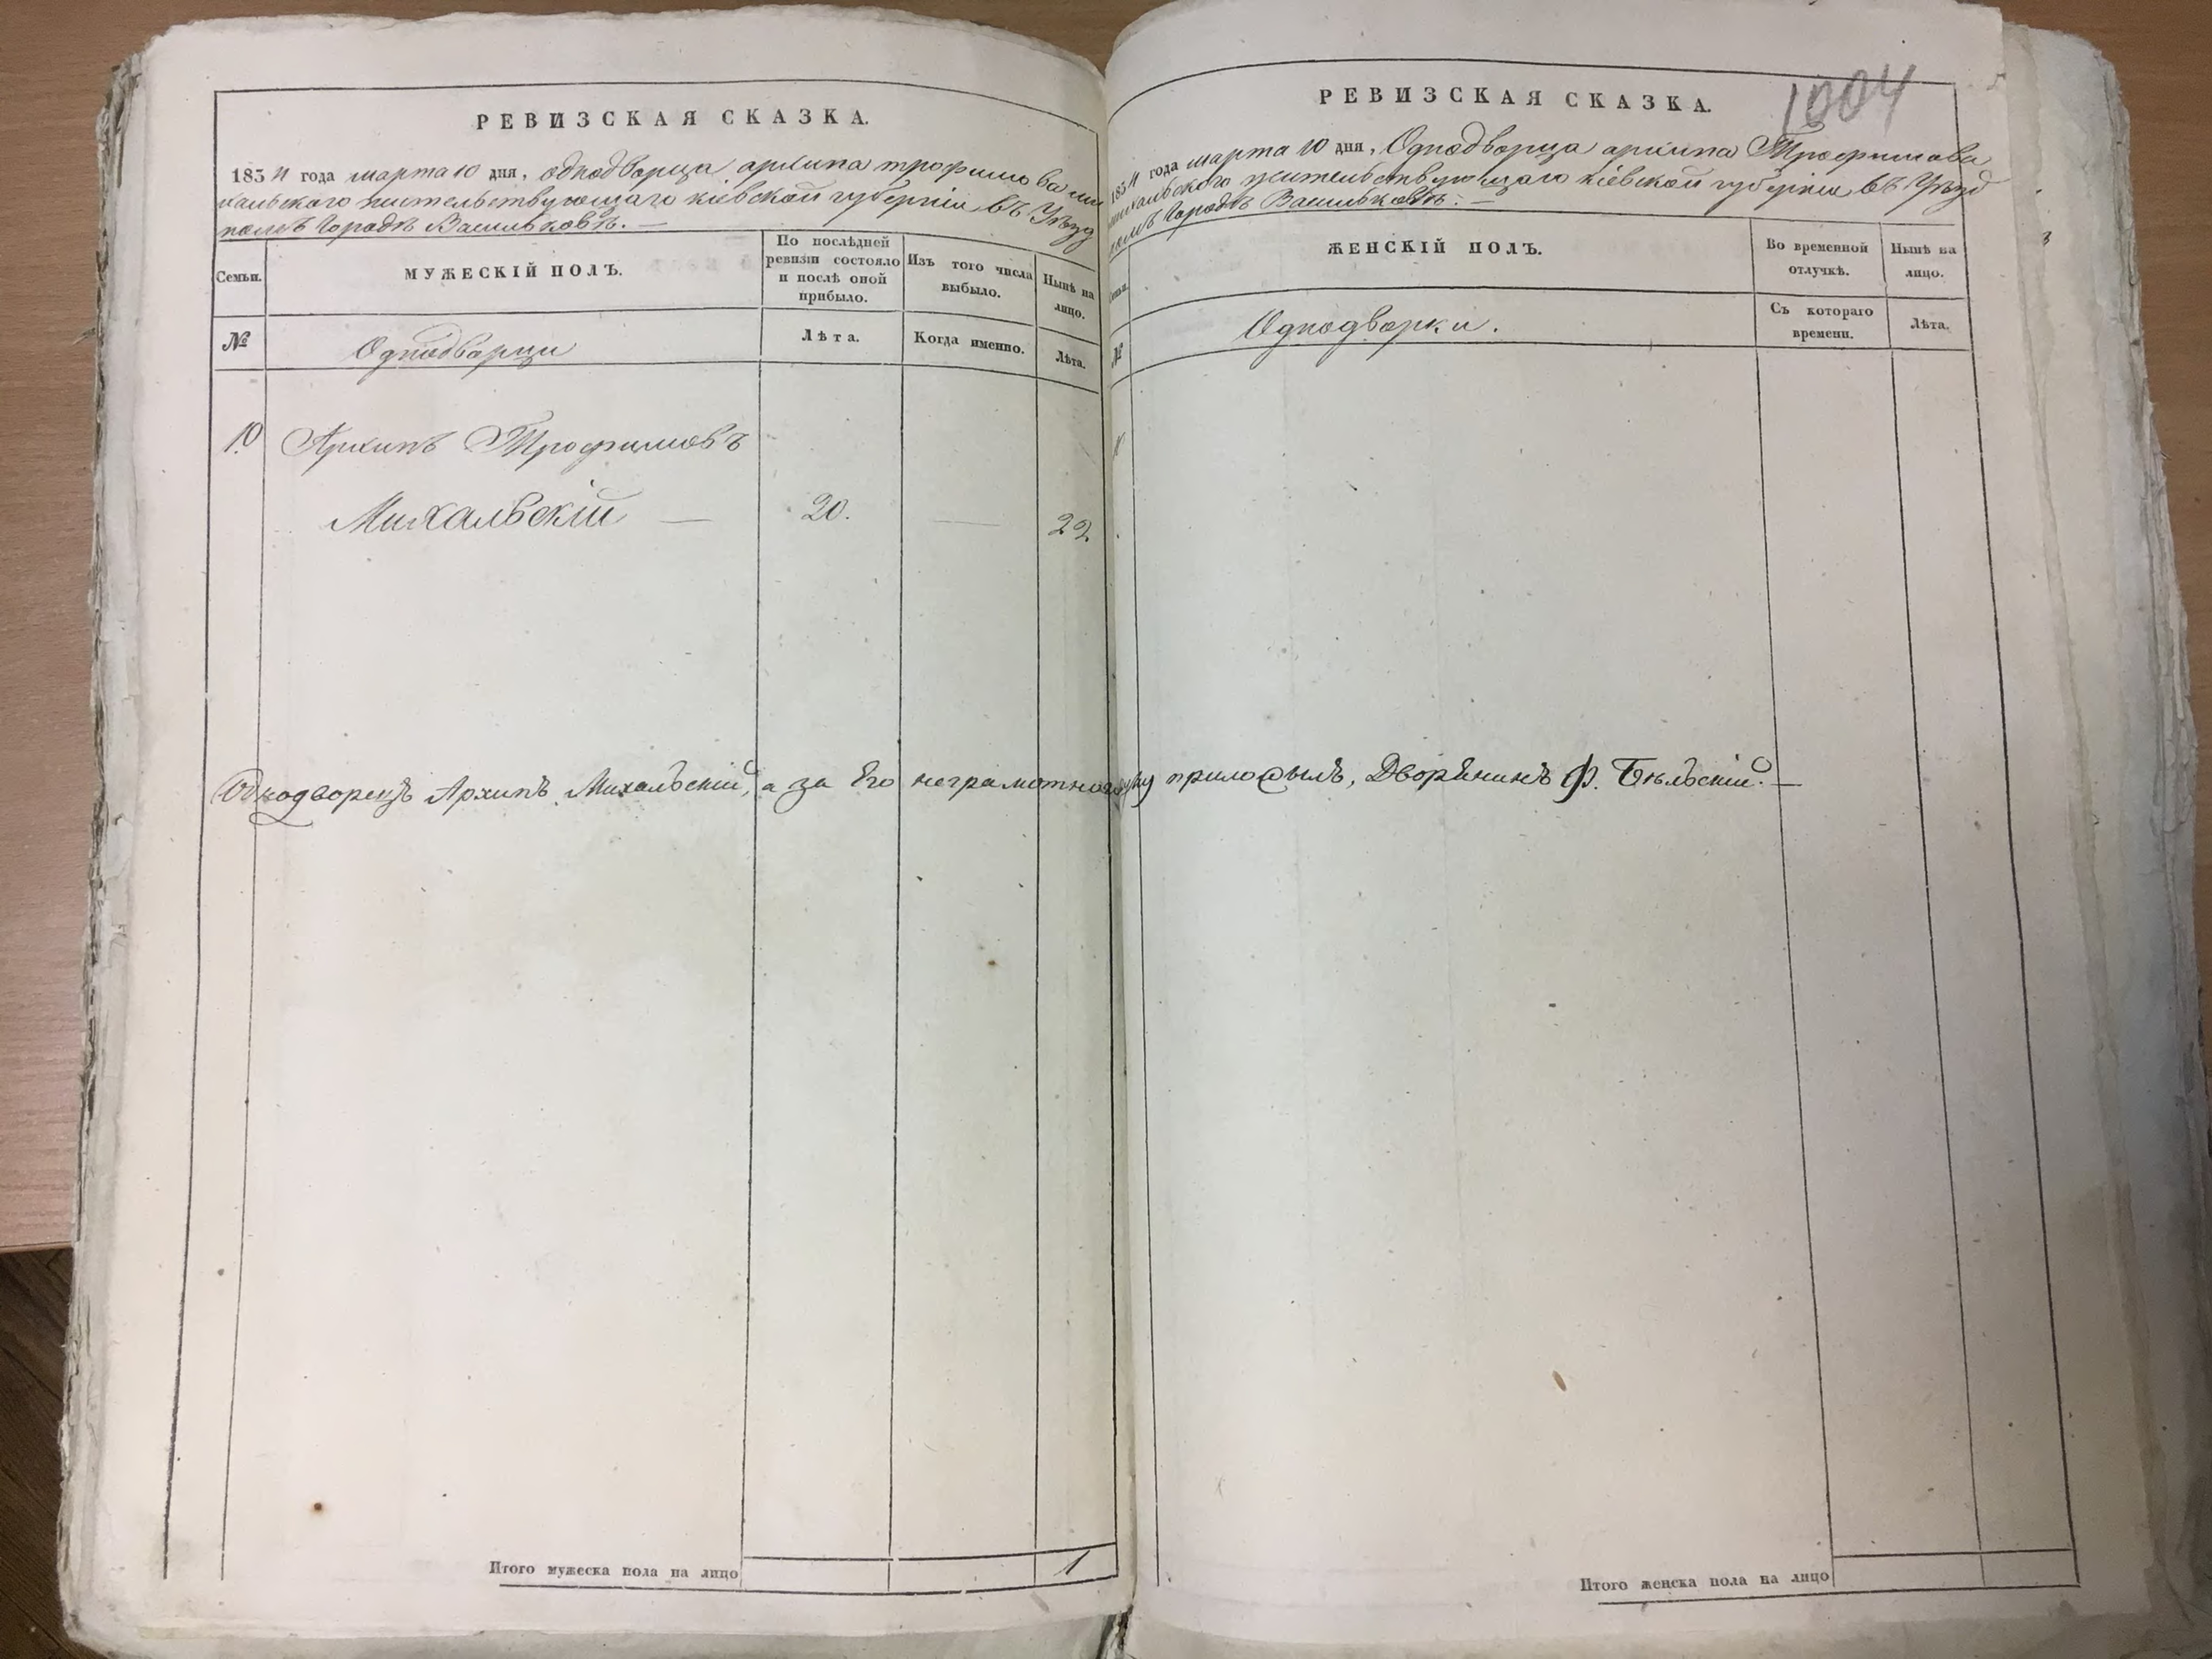 РЕВИЗСКАЯ СКАЗКА.
1834 года марта 10 дня, однодворца архипа трофимова ми
хальского жительствующаго кіевской губерніи въ Уѣзд
номъ Городѣ Васильковѣ. —
Семьи.
МУЖЕСКІЙ ПОЛЪ.
По послѣдней
ревизіи состояло
и послѣ оной
прибыло.
Изъ того числа
выбыло.
Нынѣ на
лицо.
№
Однодворцы
Лѣта.
Когда именно.
Лѣта.
10 Архипъ Трофимовъ
Михальскій — 20. — 22.
Однодворецъ Архипъ Михальскій, а за Его неграмотного руку приложылъ, Дворѣнинъ Ф. Бѣльскій. —
Итого мужеска пола на лицо 1
1004
РЕВИЗСКАЯ СКАЗКА.
1834 года марта 10 дня, Однодворца архипа Трофимова
михальского жительствующаго кіевской губерніи въ Уѣзд
номъ Городѣ Васильковѣ. —
Семьи.
ЖЕНСКІЙ ПОЛЪ.
Во временной
отлучкѣ.
Нынѣ на
лицо.
№
Однодворки.
Съ котораго
времени.
Лѣта.
Итого женска пола на лицо